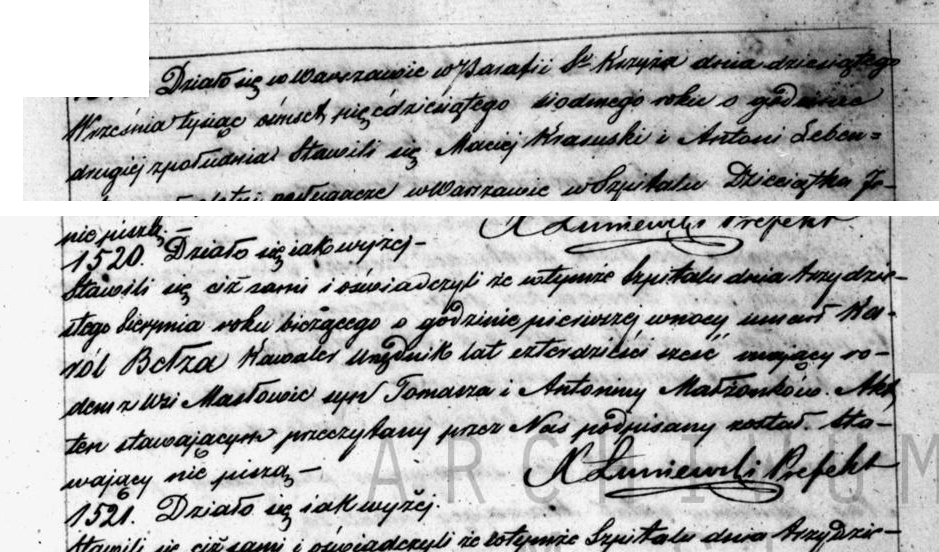 Działo się w Warszawie w Parafii Sgo Krzyża dnia dziesiątego
Września tysiąc ośmset pięćdziesiątego siodmego roku o godzinie
drugiej z południa Stawili się Maciej Krasuski i Antoni Leben=
letni posługacze w Warszawie w Szpitalu Dzieciątka Je-
nie piszą.- X Łuniewski Prefekt
1520. Działo się jak wyżej-
Stawili się ciż sami i oświadczyli że w tymże Szpitalu dnia trzydzie-
stego Sierpnia roku bieżącego o godzinie pierwszej w nocy umarł Ka-
ról Bełza Kawaler Urzędnik lat czterdzieści sześć mający ro-
dem z Wsi Masłowic syn Tomasza i Antoniny Małżonków. Akt
ten stawającym przeczytany przez Nas podpisany został. Sta-
wający nie piszą- X Łuniewski Prefekt
ARCHIWUM
1521. Działo się jak wyżej.
Stawili się ciż sami i oświadczyli że w tymże Szpitalu dnia trzydzie-